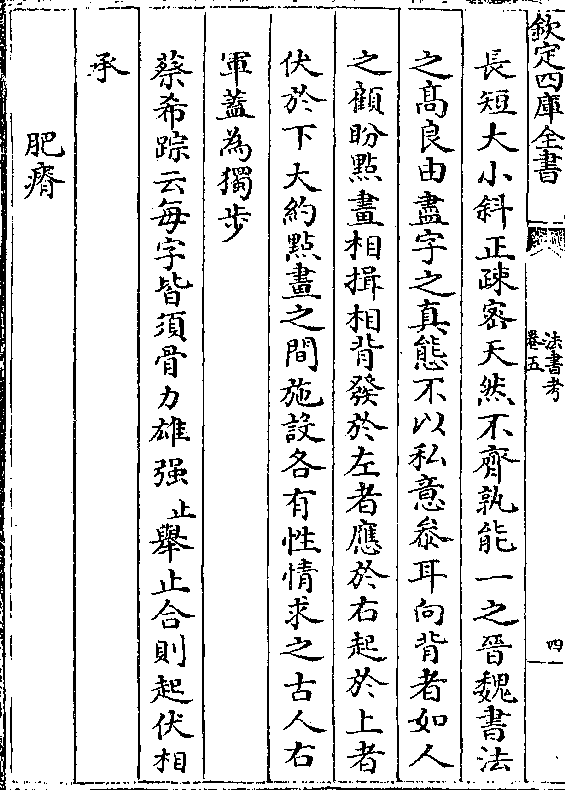 欽定四庫全書
法書考
卷五
四
長短大小斜正疎密天然不齊孰能一之晉魏書法
之髙良由盡字之真態不以私意叅耳向背者如人
之顧盼㸃畫相揖相背發於左者應於右起於上者
伏於下大約㸃畫之間施設各有性情求之古人右
軍蓋為獨步
蔡希踪云每字皆須骨力雄强止舉止合則起伏相
承
肥瘠